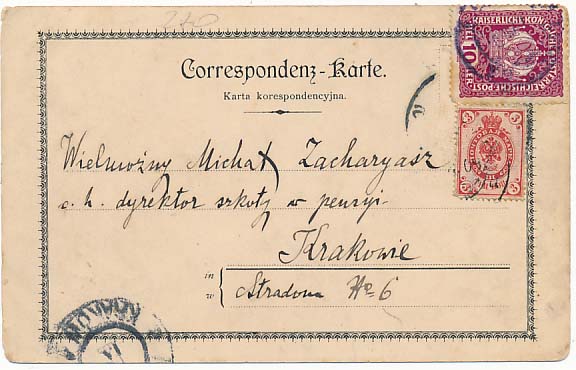 240
Correspondenz-Karte.
Karta korespondencyjna.
KAISERLICHE KÖNIGLICHE
10
3 3
Wielmożny Michał Zacharyasz
c. k. dyrektor szkoły w pensyi
Krakowie
in
w
Stradom No 6